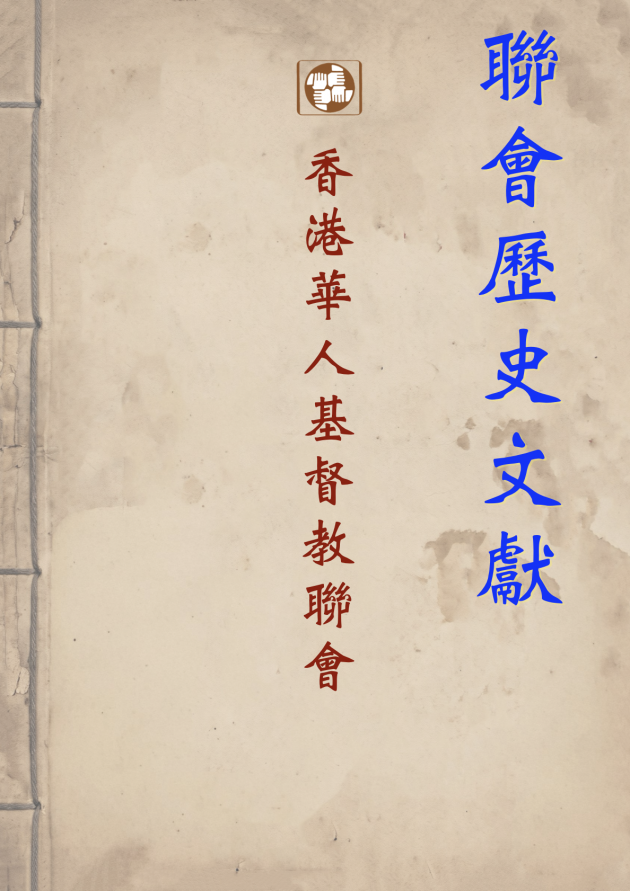 聯會歷史文獻
香港華人基督教聯會